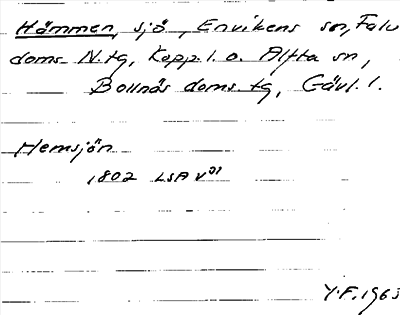 Hämmen, sjö, Envikens sn, Falu
doms. N. tg, Kopp. l. o. Alfta sn,
Bollnäs doms. tg, Gävl. l.
Hemsjön
1802 LSA V
Y.F. 1963